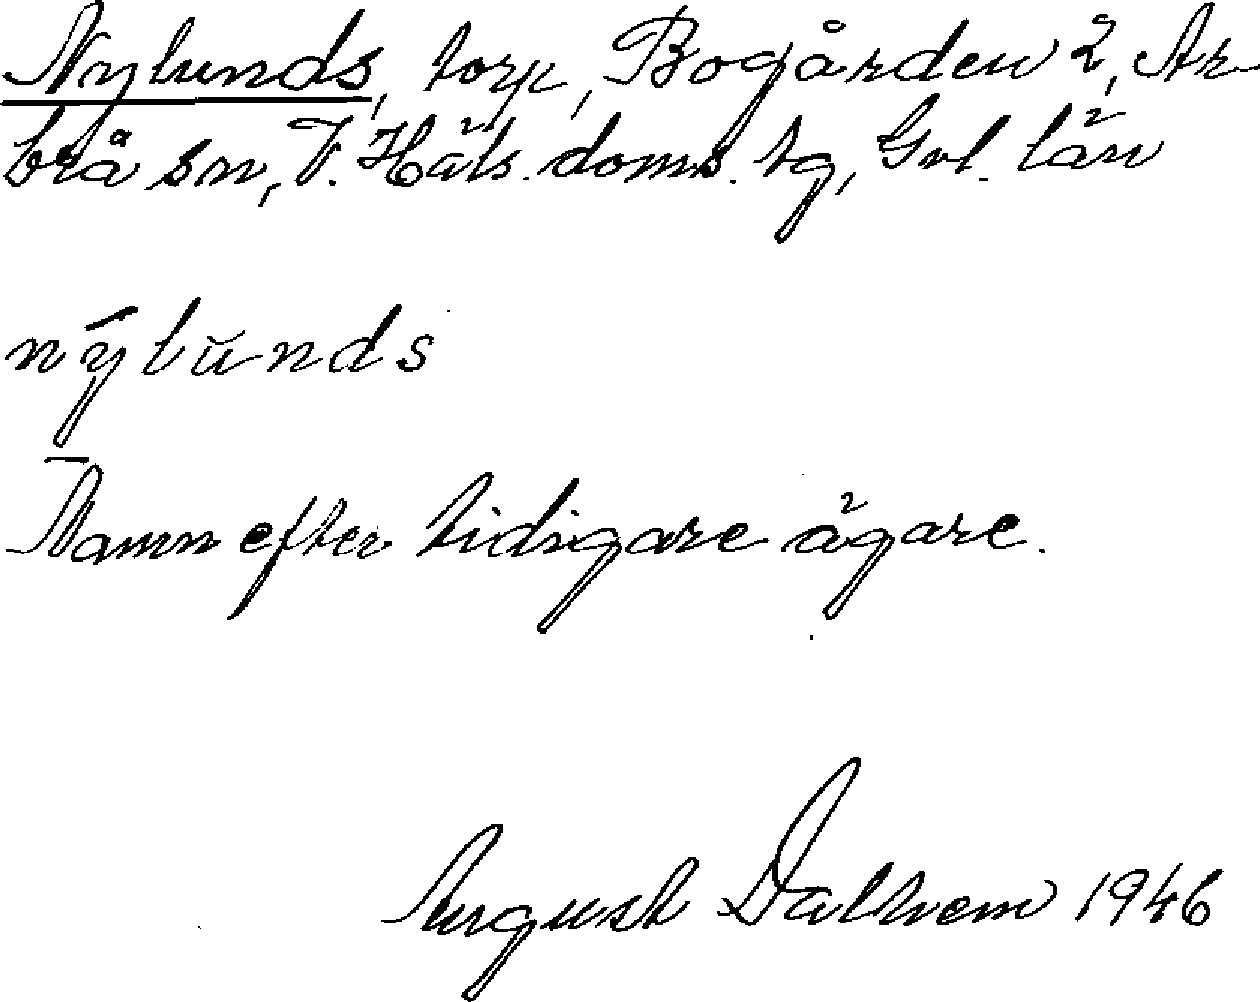 Nylunds, torp, Bogården 2, Ar-
brå sn, V. Häls. doms. tg, Gvl. län
nýlŭnds
Namn efter tidigare ägare.
August Dalhem 1946